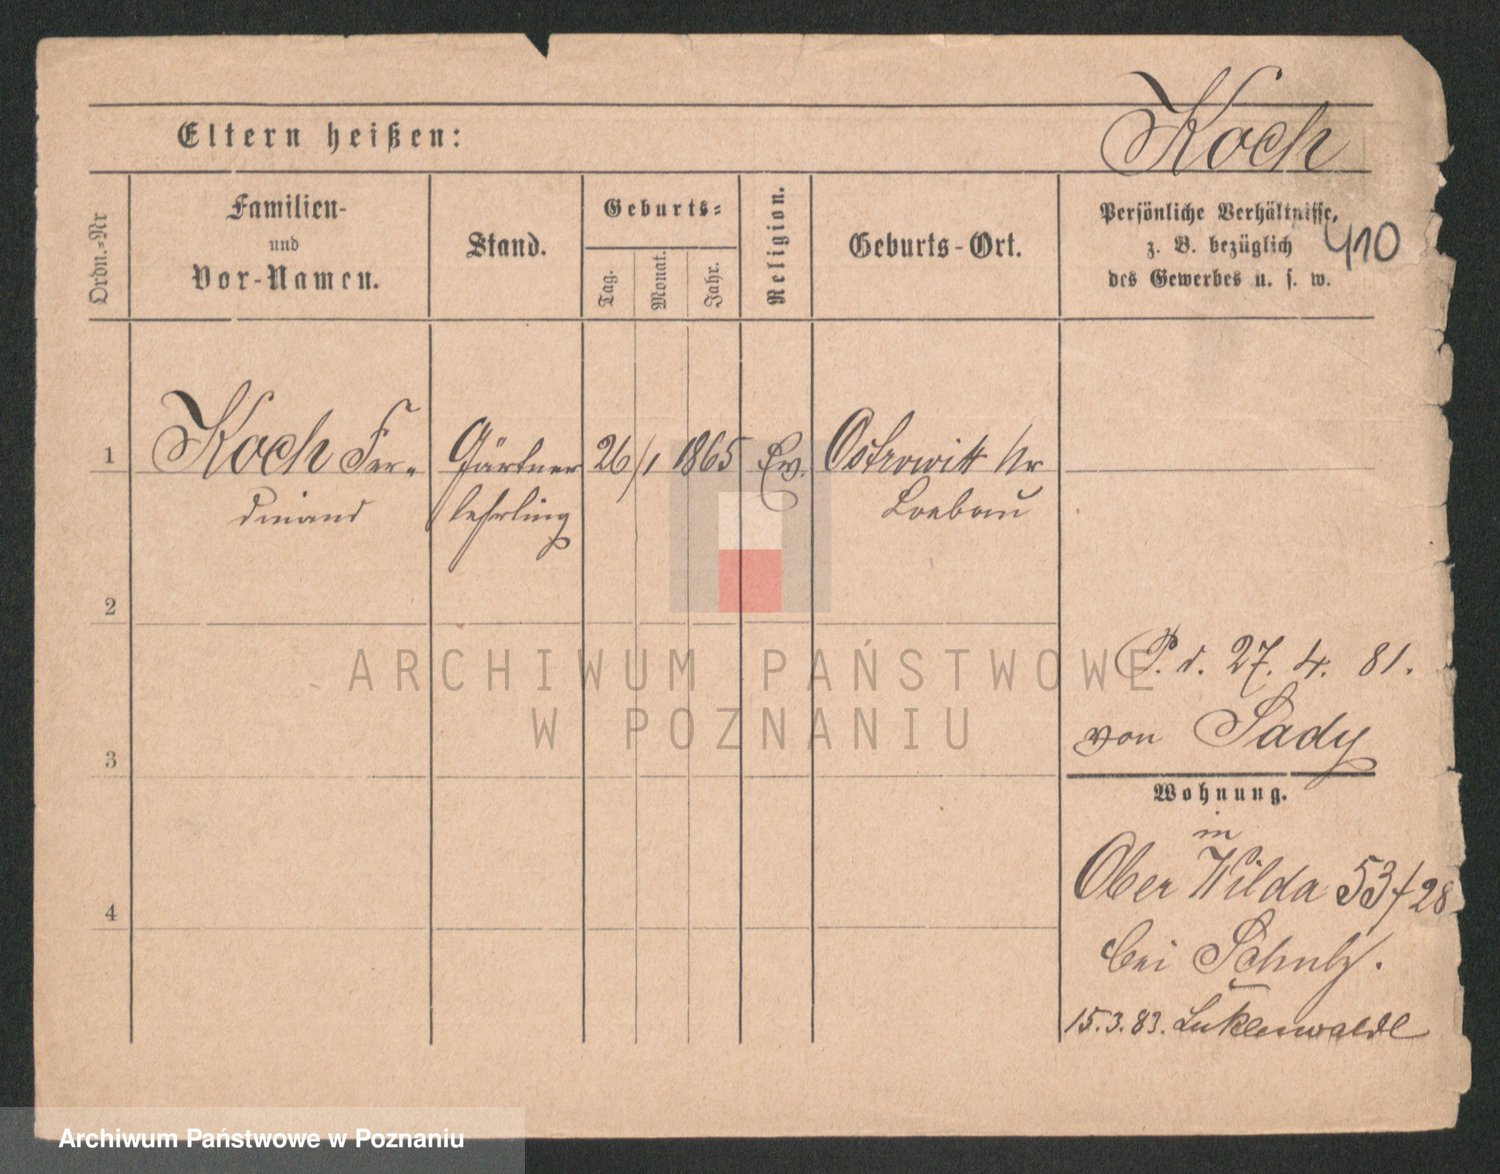 Koch
Eltern heißen:
Ordn.-Nr
Familien-
und
Vor-Namen.
Stand.
Geburts-
Tag.
Monat.
Jahr.
Religion.
Geburts-Ort.
Persönliche Verhältnisse,
z. B. bezüglich
des Gewerbes u. s. w.
410
1
Koch Fer-
dinand
Gärtner
lehrling
26/1 1865
Ev.
Ostrowitt Kr
Loebau
2
3
4
P. d. 27. 4. 81.
von Sady
Wohnung.
in
Ober Wilda 53/28
bei Schulz.
15.3.83.
ARCHIWUM PAŃSTWOWE
W POZNANIU
Archiwum Państwowe w Poznaniu